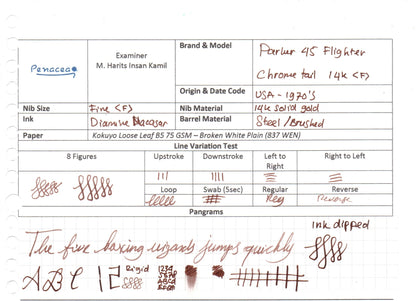 Penacea
Examiner
M. Harits Insan Kamil
Brand & Model
Parker 45 Flighter
Chrome tail 14k <F>
Origin & Date Code
USA - 1970's
Nib Size
Fine <F>
Nib Material
14k solid gold
Ink
Diamine Macassar
Barrel Material
Steel / Brushed
Paper
Kokuyo Loose Leaf B5 75 GSM – Broken White Plain (837 WEN)
Line Variation Test
8 Figures
Upstroke
Downstroke
Left to Right
Right to Left
Loop
Swab (5sec)
Regular
Reverse
Reg
Reverse
Pangrams
Ink dipped
The five boxing wizards jumps quickly
A B C
Rigid
1234
5678
ABCD